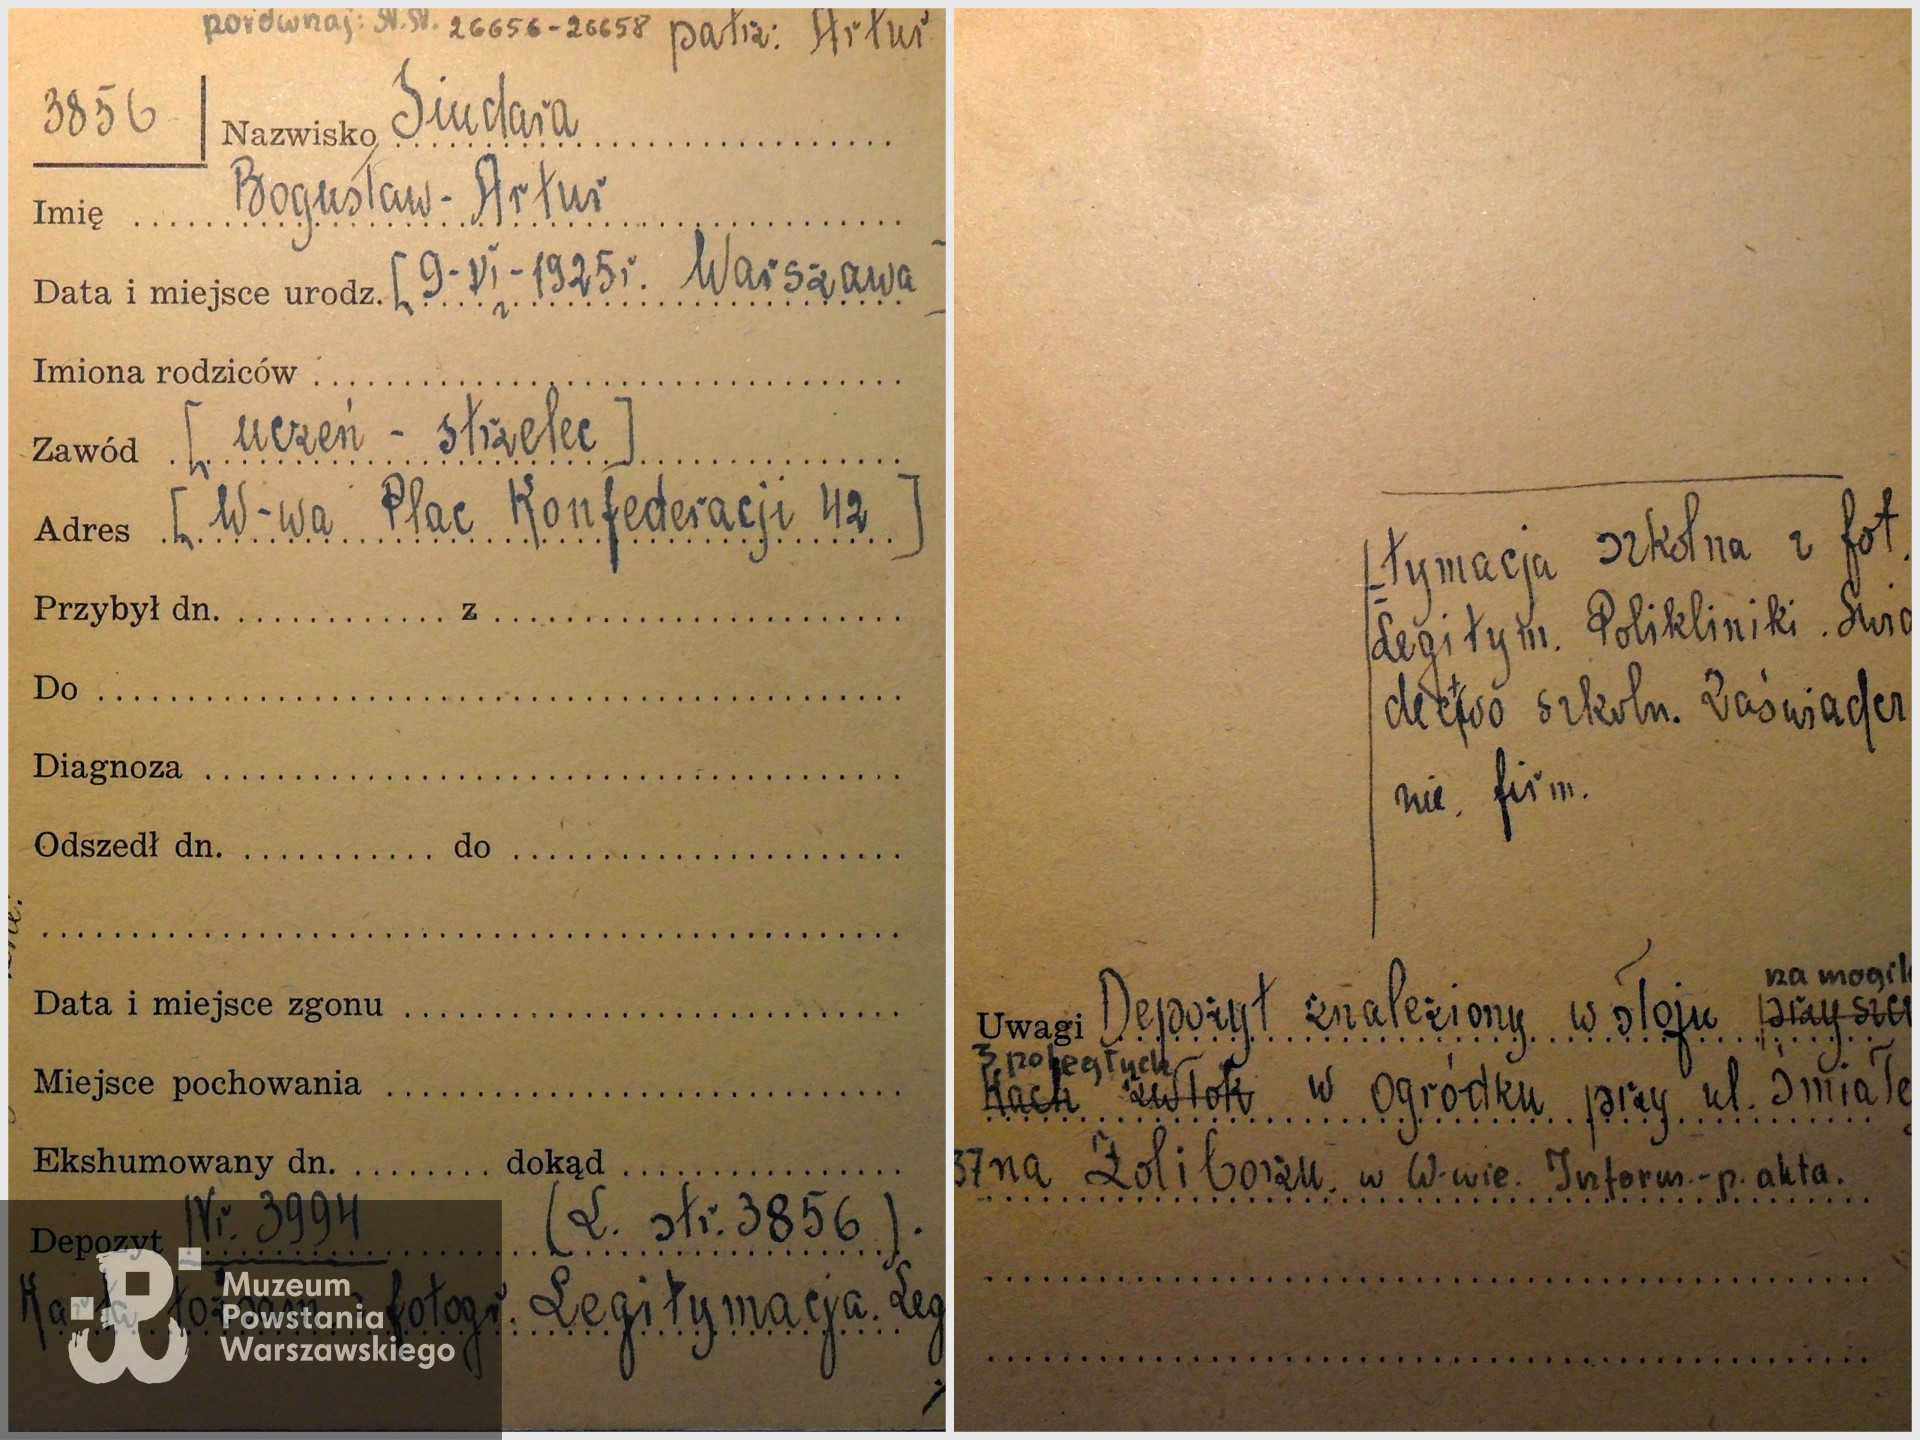 porównaj: N.N. 26656-26658 patrz: Artur
3856
Nazwisko Siudara
Imię Bogusław-Artur
Data i miejsce urodz. [9-VI-1925r. Warszawa]
Imiona rodziców
Zawód [uczeń - strzelec]
Adres [W-wa Plac Konfederacji 42]
Przybył dn. z
Do
Diagnoza
Odszedł dn. do
Data i miejsce zgonu
Miejsce pochowania
Ekshumowany dn. dokąd
Depozyt Nr. 3994 (L. str. 3856).
Karta tożsam. z fotogr. Legitymacja. Leg
Muzeum
Powstania
Warszawskiego
tymacja szkolna z fot.
Legitym. Polikliniki. Świa
dectwo szkoln. Zaświadcz
nie. firm.
na mogil
Uwagi Depozyt znaleziony w słoju przy szcz
3 poległych
kach zwłok w ogródku przy ul. Śmiałe
37 na Żoliborzu. w W-wie. Inform.-p. akta.